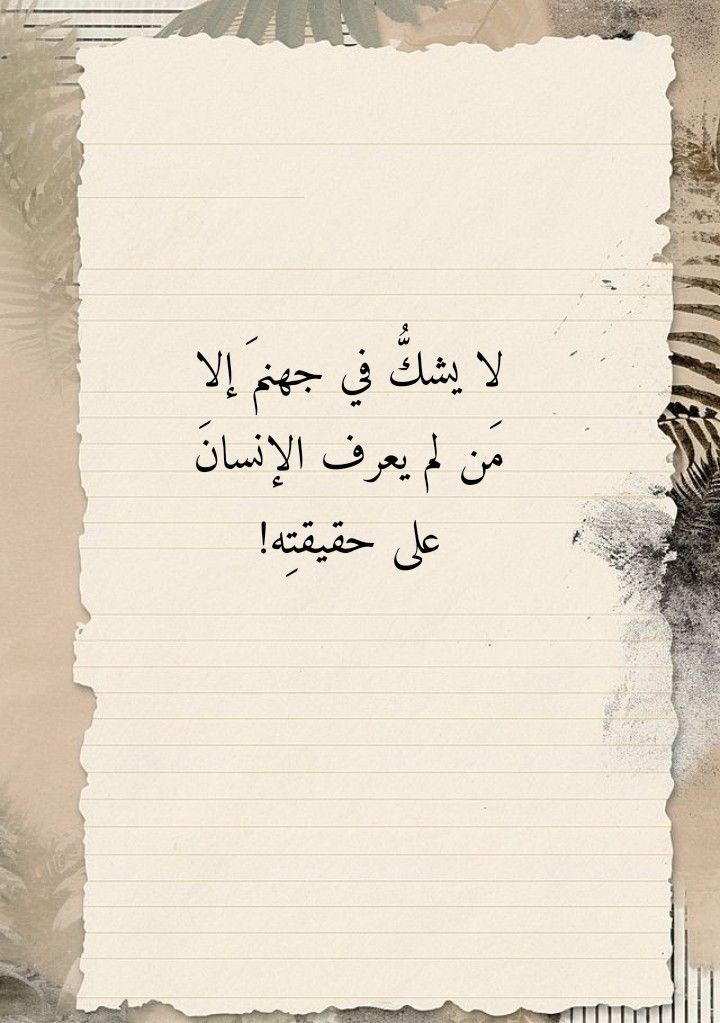 لا يشكُّ في جهنمَ إلا
مَن لم يعرف الإنسانَ
على حقيقتِه!